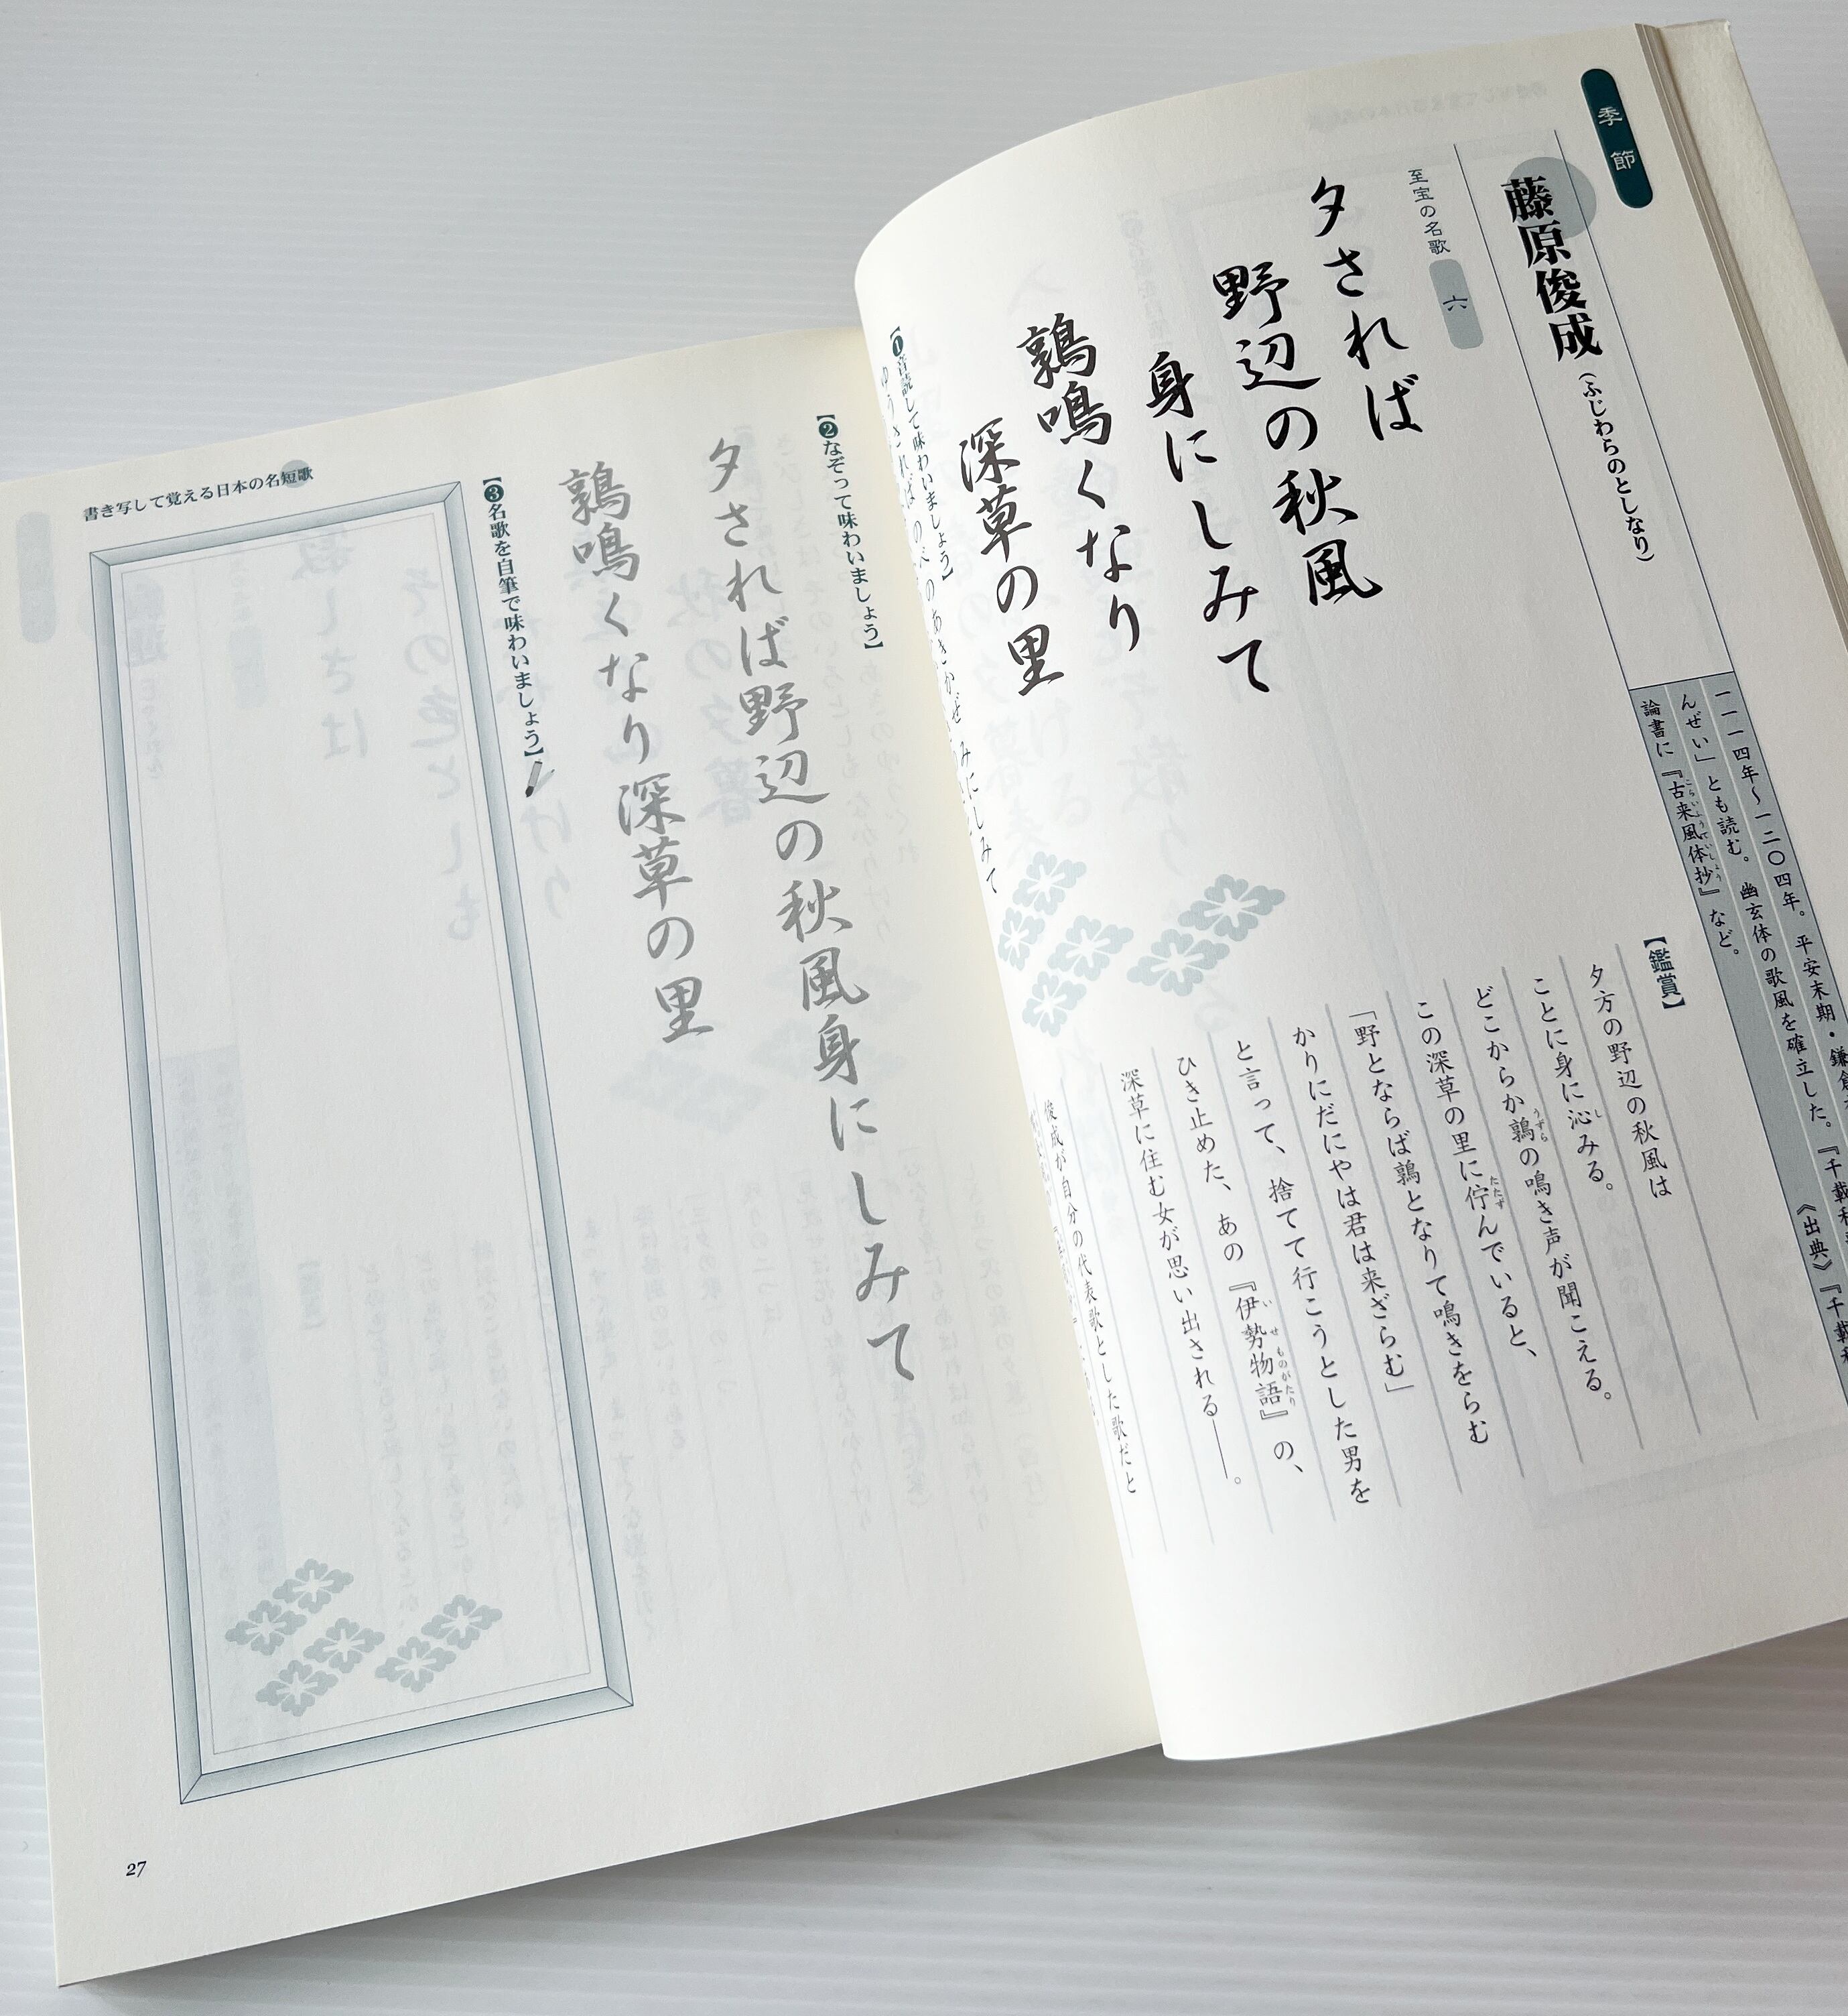 季節
藤原俊成(ふじわらのとしなり)
一一一四年〜一二〇四年。平安末期・鎌倉
んぜい」とも読む。幽玄体の歌風を確立した。『千載和
論書に『古来風体抄』など。
《出典》『千載和
至宝の名歌 六
夕されば
野辺の秋風
身にしみて
鶉鳴くなり
深草の里
【鑑賞】
夕方の野辺の秋風は
ことに身に沁みる。
どこからか鶉の鳴き声が聞こえる。
この深草の里に佇んでいると、
「野とならば鶉となりて鳴きをらむ
かりにだにやは君は来ざらむ」
と言って、捨てて行こうとした男を
ひき止めた、あの『伊勢物語』の、
深草に住む女が思い出される——。
俊成が自分の代表歌とした歌だと
【❶音読して味わいましょう】
ゆうされば のべのあきかぜ みにしみて
【❷なぞって味わいましょう】
夕されば野辺の秋風身にしみて
鶉鳴くなり深草の里
【❸名歌を自筆で味わいましょう】
書き写して覚える日本の名短歌
27